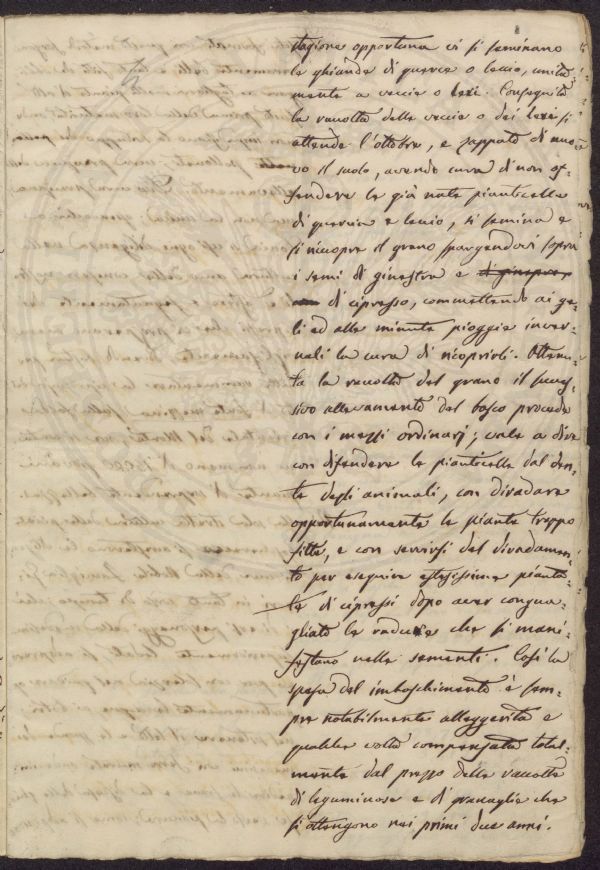 stagione opportuna ci si seminano
le ghiande di querce o leccio, unita
mente a veccie o lezi. Conseguita
la raccolta delle veccie o dei lezi si
attende l'ottobre, e zappato di nuo
vo il suolo, avendo cura di non of-
fendere le già nate pianticelle
di quercia e leccio, si semina e
si ricopre il grano spargendovi sopra
i semi di ginestra e di ginepro
di cipresso, commettendo ai ge-
li ed alle minute pioggie inver-
nali la cura di ricoprirli. Ottenu-
ta la raccolta del grano il succes-
sivo allevamento del bosco procede
con i mezzi ordinarj; vale a dire
con difendere le pianticelle dal den-
te degli animali, con diradare
opportunamente le piante troppo
fitte, e con servirsi del diradamen-
to per eseguire estesissime pianta
te di cipressi dopo aver congua-
gliato le radure che si mani-
festano nelle sementi. Così la
spesa del imboschimento è sem-
pre notabilmente alleggerita e
qualche volta compensata total-
mente dal prezzo delle raccolte
di leguminose e di granaglie che
si ottengono nei primi due anni.